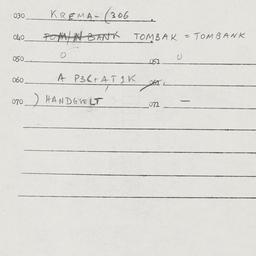 030 KREMA-(306
040 TOMINBANK TOMBAK = TOMBANK
050 0 051 0
060 A P3K+AT1K 061
070 ) HANDGVELT 072 —